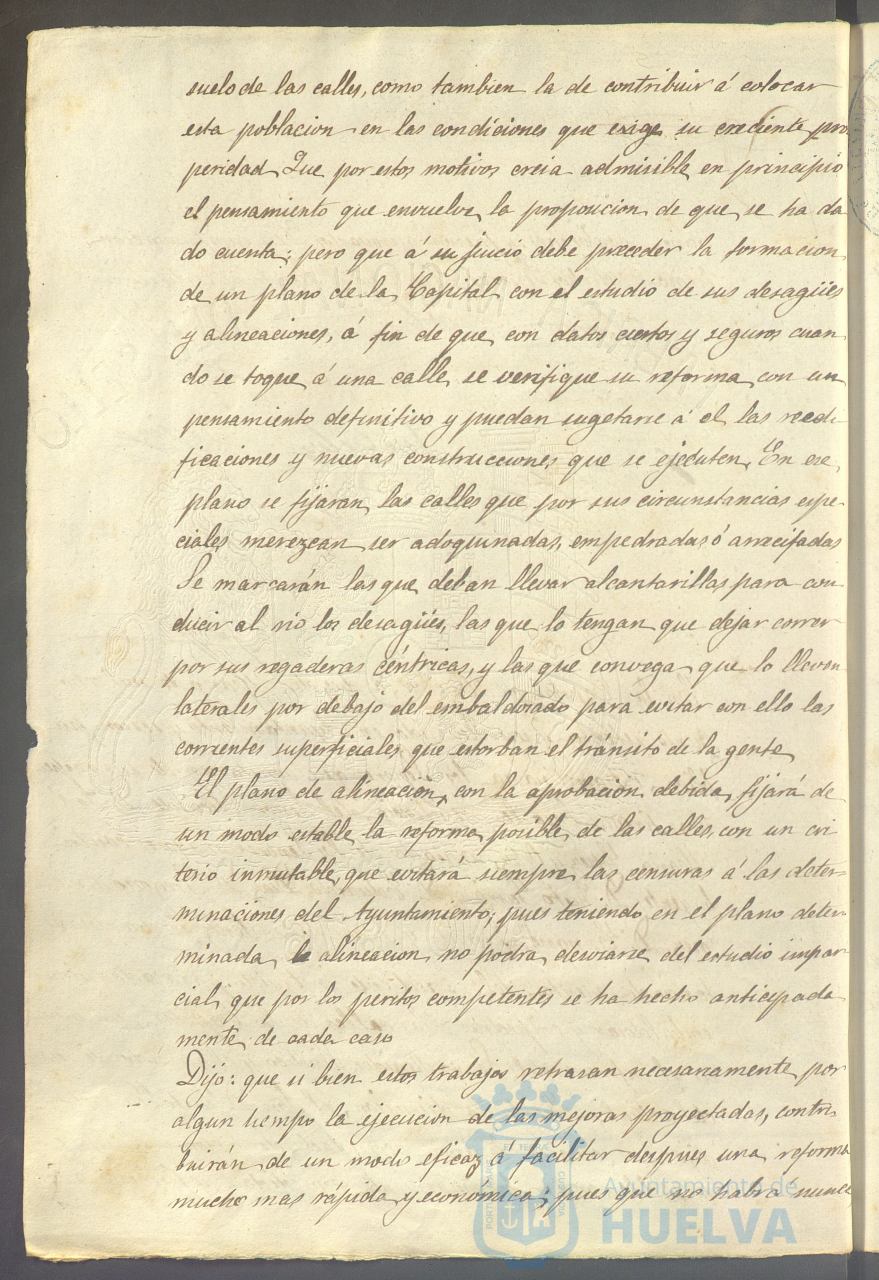 suelo de las calles, como tambien la de contribuir á colocar
esta poblacion en las condiciones que exige su creciente pros
peridad Que por estos motivos creia admisible en principio
el pensamiento que envuelve la proposicion de que se ha da
do cuenta; pero que á su juicio debe preceder la formacion
de un plano de la Capital con el estudio de sus desagües
y alineaciones, á fin de que con datos ciertos y seguros cuan
do se toque á una calle se verifique su reforma con un
pensamiento definitivo y puedan sugetarse á el las reedi
ficaciones y nuevas construcciones que se ejecuten. En ese
plano se fijaran las calles que por sus circunstancias espe-
ciales merezcan ser adoquinadas, empedradas ó arrecifadas
Se marcarán las que deban llevar alcantarillas para con
ducir al rio los desagües, las que lo tengan que dejar correr
por sus regaderas céntricas, y las que convega que lo lleven
laterales por debajo del embaldosado para evitar con ello las
corrientes superficiales que estorban el tránsito de la gente
El plano de alineacion, con la aprobacion debida, fijará de
un modo estable la reforma posible de las calles, con un cri
terio inmutable, que evitará siempre las censuras á las deter-
minaciones del Ayuntamiento; pues teniendo en el plano deter-
minada la alineacion no podra desviarse del estudio impar-
cial que por los peritos competentes se ha hecho anticipada
mente de cada caso
Dijo: que si bien estos trabajos retrasan necesariamente por
algun tiempo la ejecucion de las mejoras proyectadas, contri-
buirán de un modo eficaz á facilitar despues una reforma
mucho mas rápida y económica; pues que no habra nunca
Ayuntamiento de
HUELVA